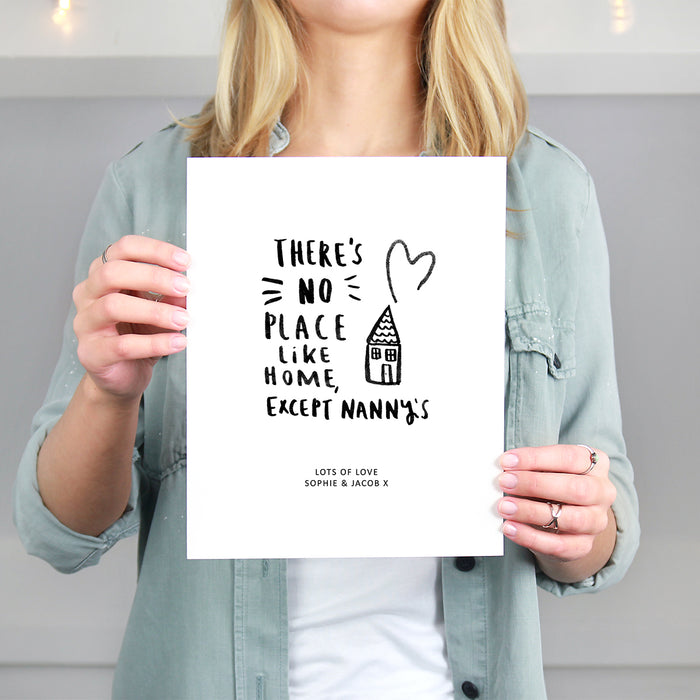 THERE'S
NO
PLACE
LIKE
HOME,
EXCEPT NANNY'S
LOTS OF LOVE
SOPHIE & JACOB X